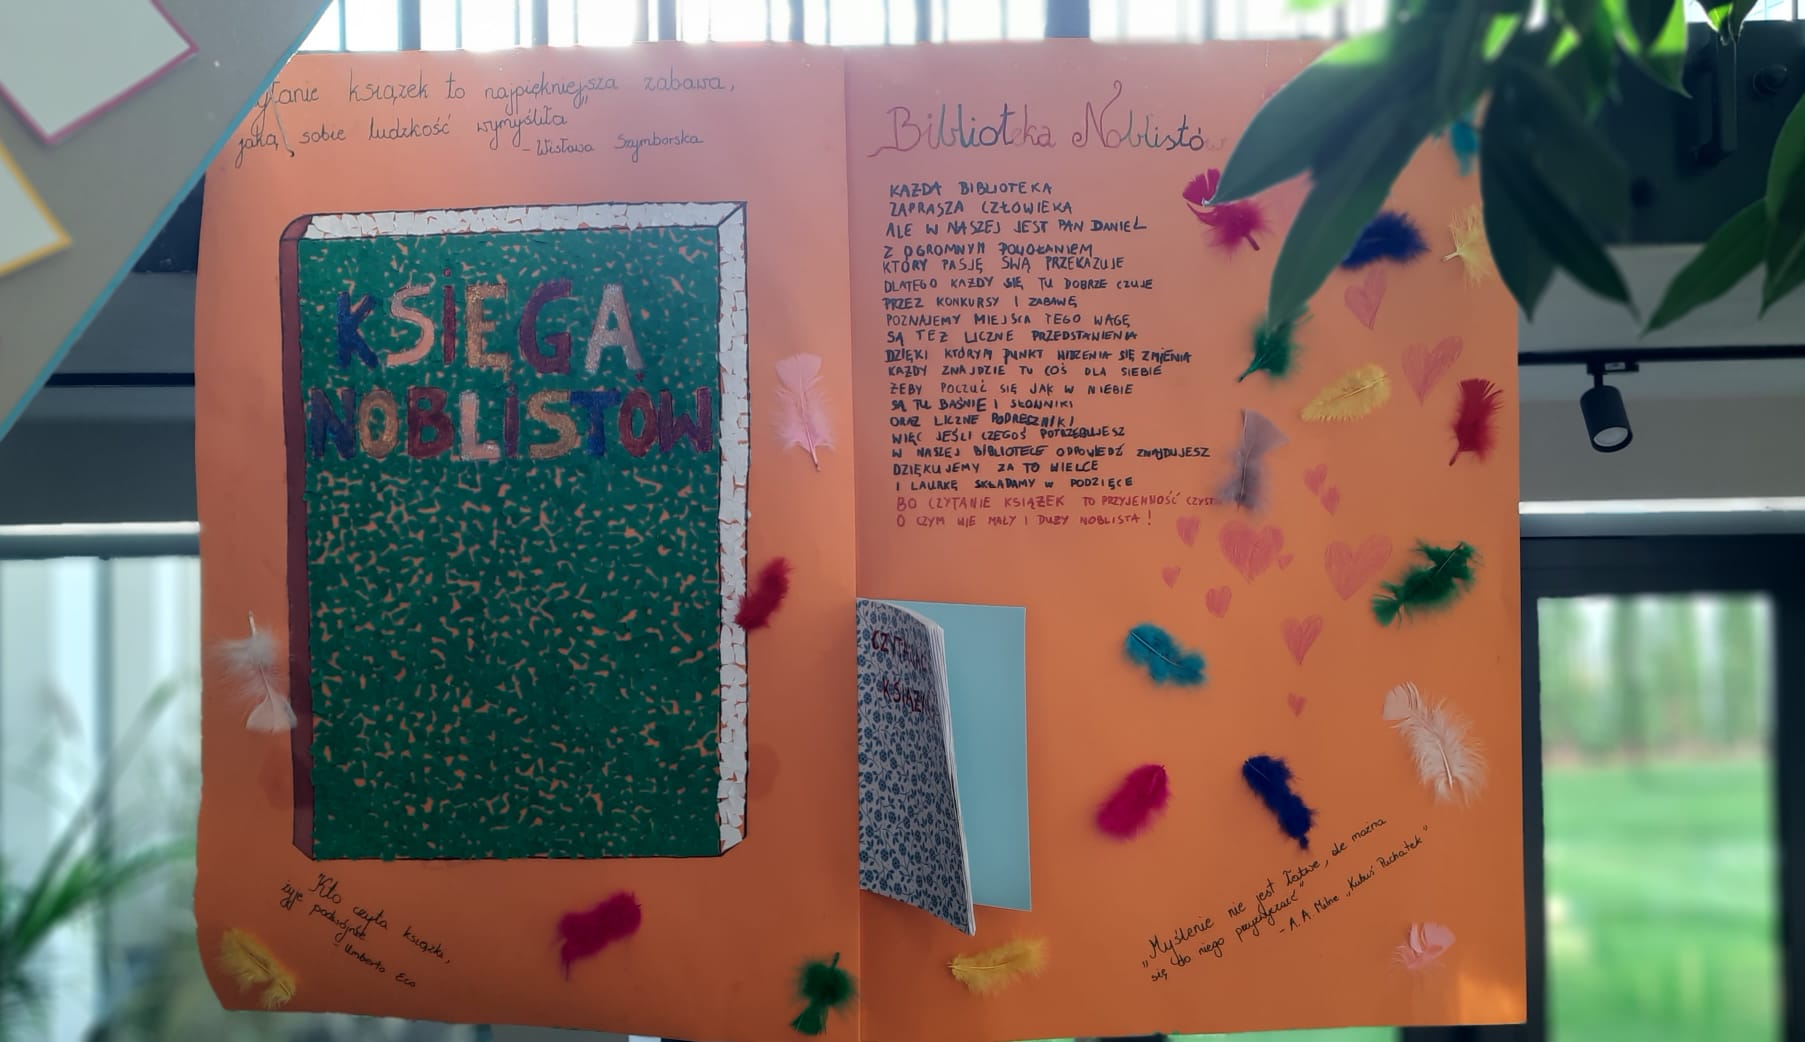 ytanie książek to najpiękniejsza zabawa,
jaką sobie ludzkość wymyśliła"
- Wisława Szymborska
KSIĘGA
NOBLISTÓW
"Kto czyta książki,
żyje podwójnie"
- Umberto Eco
Biblioteka Noblistów
KAŻDA BIBLIOTEKA
ZAPRASZA CZŁOWIEKA
ALE W NASZEJ JEST PAN DANIEL
Z OGROMNYM POWOŁANIEM
KTÓRY PASJĘ SWĄ PRZEKAZUJE
DLATEGO KAŻDY SIĘ TU DOBRZE CZUJE
PRZEZ KONKURSY I ZABAWĘ
POZNAJEMY MIEJSCA TEGO WAGĘ
SĄ TEŻ LICZNE PRZEDSTAWIENIA
DZIĘKI KTÓRYM PUNKT WIDZENIA SIĘ ZMIENIA
KAŻDY ZNAJDZIE TU COŚ DLA SIEBIE
ŻEBY POCZUĆ SIĘ JAK W NIEBIE
SĄ TU BAŚNIE I SŁOWNIKI
ORAZ LICZNE PODRĘCZNIKI
WIĘC JEŚLI CZEGOŚ POTRZEBUJESZ
W NASZEJ BIBLIOTECE ODPOWIEDŹ ZNAJDUJESZ
DZIĘKUJEMY ZA TO WIELCE
I LAURKĘ SKŁADAMY W PODZIĘCE
BO CZYTANIE KSIĄŻEK TO PRZYJEMNOŚĆ CZYST
O CZYM WIE MAŁY I DUŻY NOBLISTA!
"Myślenie nie jest łatwe, ale można
się do niego przyzwyczaić"
- A. A. Milne "Kubuś Puchatek"